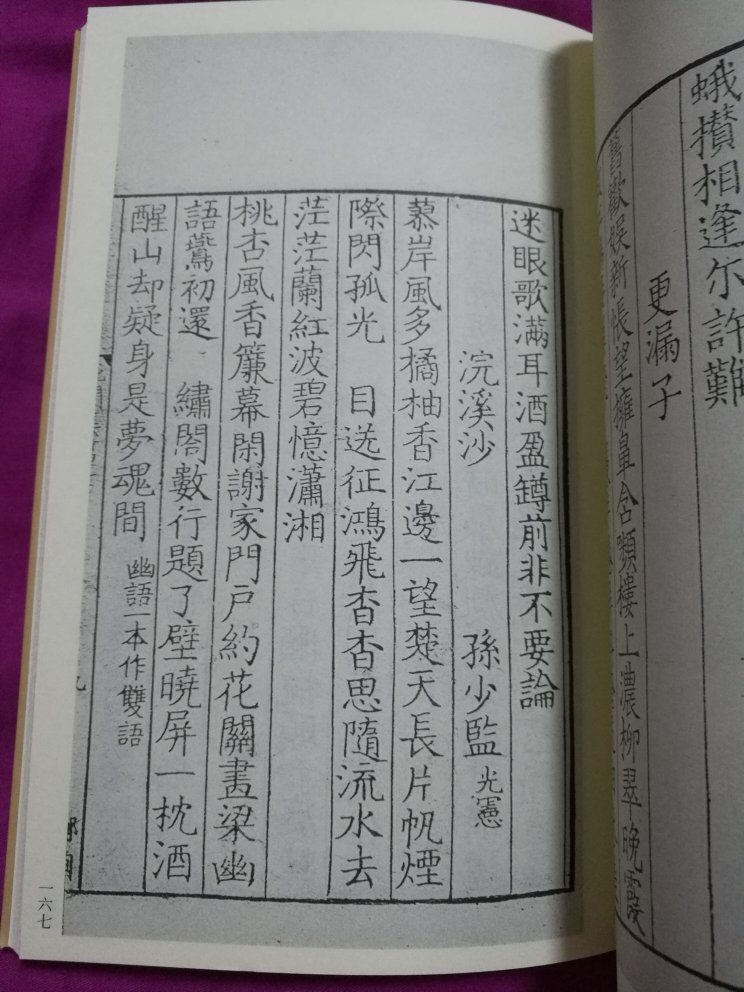 蛾攢相逢尔許難
更漏子
舊歡娛新悵望擁鼻含顰樓上濃柳翠晚霞
迷眼歌滿耳酒盈罇前非不要論
浣溪沙 孫少監 光憲
蓼岸風多橘柚香江邊一望楚天長片帆煙
際閃孤光 目送征鴻飛杳杳思隨流水去
茫茫蘭紅波碧憶瀟湘
桃杏風香簾幕閑謝家門戶約花關畫梁幽
語鷰初還 繡閣數行題了壁曉屏一枕酒
醒山却疑身是夢魂間 幽語一本作雙語
一六七